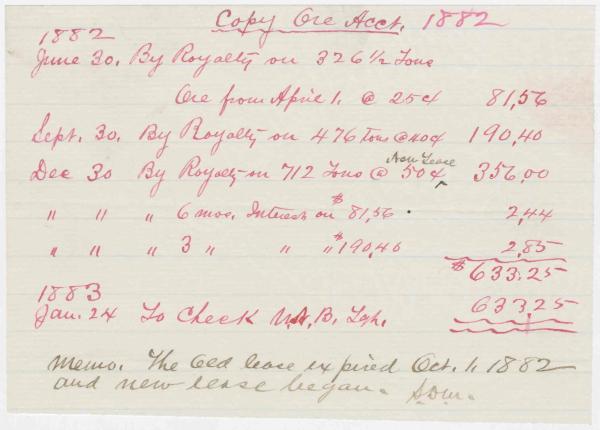 Copy Ore Acct. 1882
1882
June 30. By Royalty on 326 1/2 Tons
Ore from April 1. @ 25¢ 81,56
Sept. 30. By Royalty on 476 Tons @ 40¢ 190,40
New Lease
Dec 30 By Royalty on 712 Tons @ 50¢ 356,00
" " " 6 mos. Interest on $81,56 . 2,44
" " " 3 " " " $190,40 2,85
$633.25
1883
Jan. 24 To Check B. 633.25
Memo. The Old lease expired Oct. 1, 1882
and new lease began.